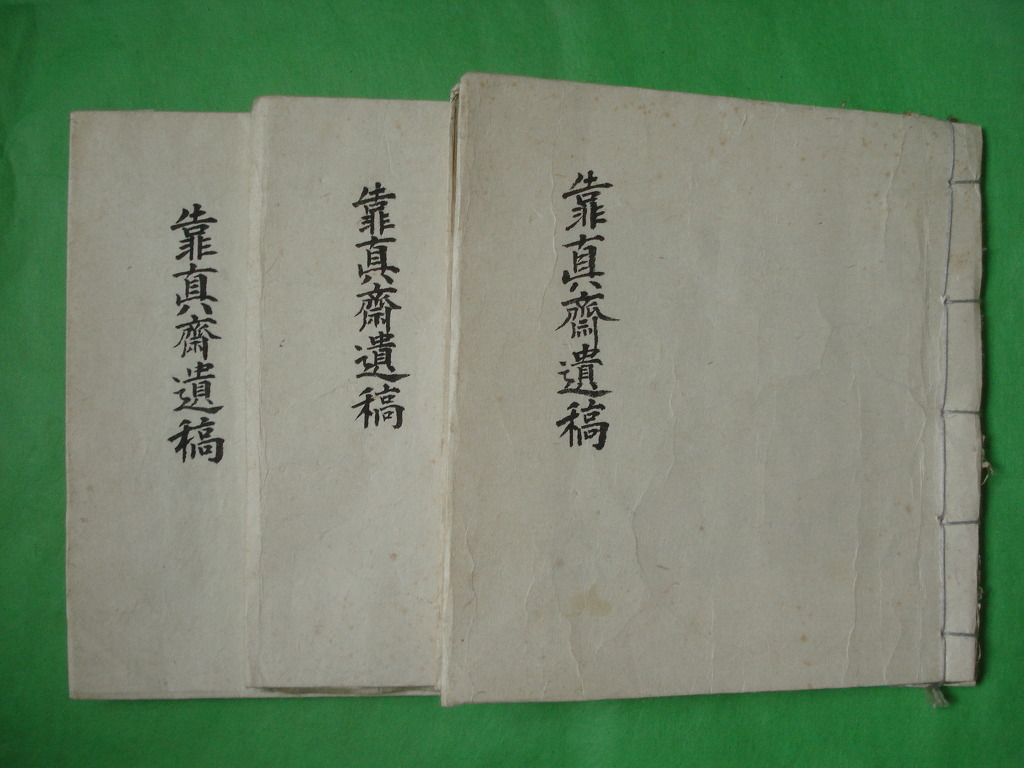 靠真齋遺稿
靠真齋遺稿
靠真齋遺稿